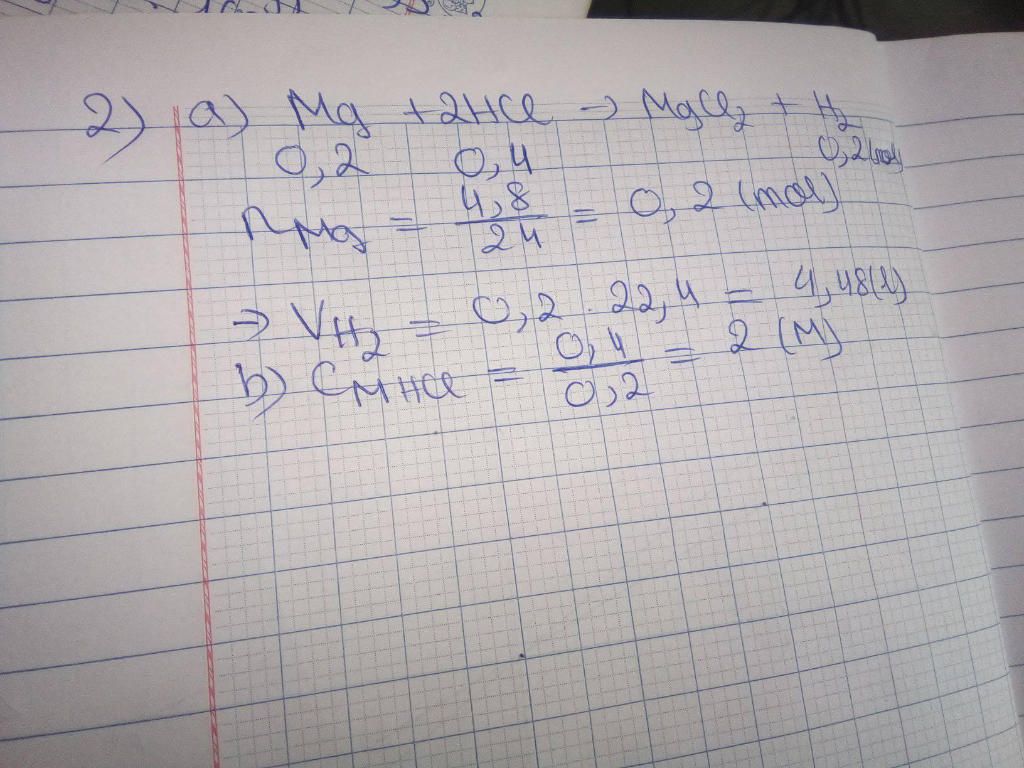 2) a) Mg + 2HCl → MgCl₂ + H₂
0,2 0,4 0,2(mol)
n Mg = 4,8/24 = 0,2 (mol)
→ V H₂ = 0,2 . 22,4 = 4,48(l)
b) CM HCl = 0,4/0,2 = 2 (M)